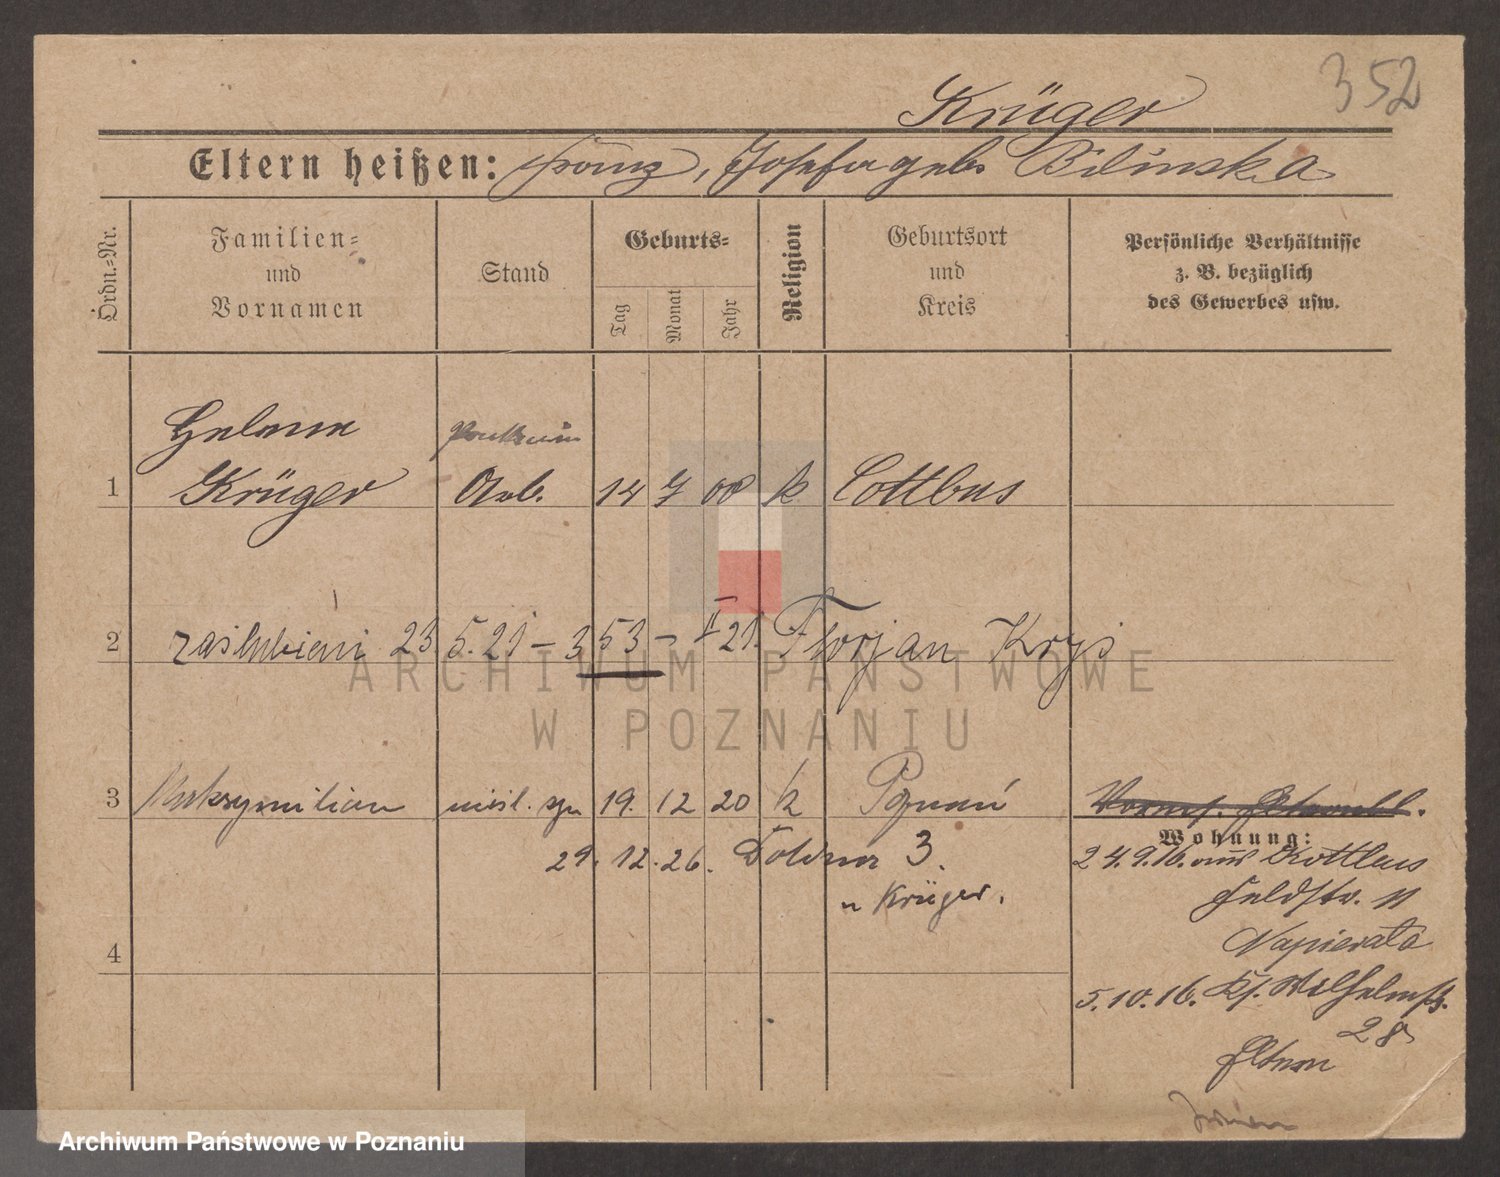 352
Krüger
Eltern heißen: Franz, Josefa geb. Bilinska
Ordn.=Nr.
Familien=
und
Vornamen
Stand
Geburts=
Tag
Monat
Jahr
Religion
Geburtsort
und
Kreis
Persönliche Verhältnisse
z. B. bezüglich
des Gewerbes usw.
Helene
1 Krüger Arb. 14 7 00 k Cottbus
2 zaślubieni 23 5.21 – 353 – II 21. Florjan Krys
3 Maksymilian nieśl. syn 19. 12 20 k Poznań
Wohnung:
29. 12. 26. 3.
24.9.16. aus Kottbus
u Krüger.
Feldstr. 11
Napierala
4
5.10.16. Ks. Wilhelmstr.
28
Eltern
ARCHIWUM PAŃSTWOWE
W POZNANIU
Archiwum Państwowe w Poznaniu